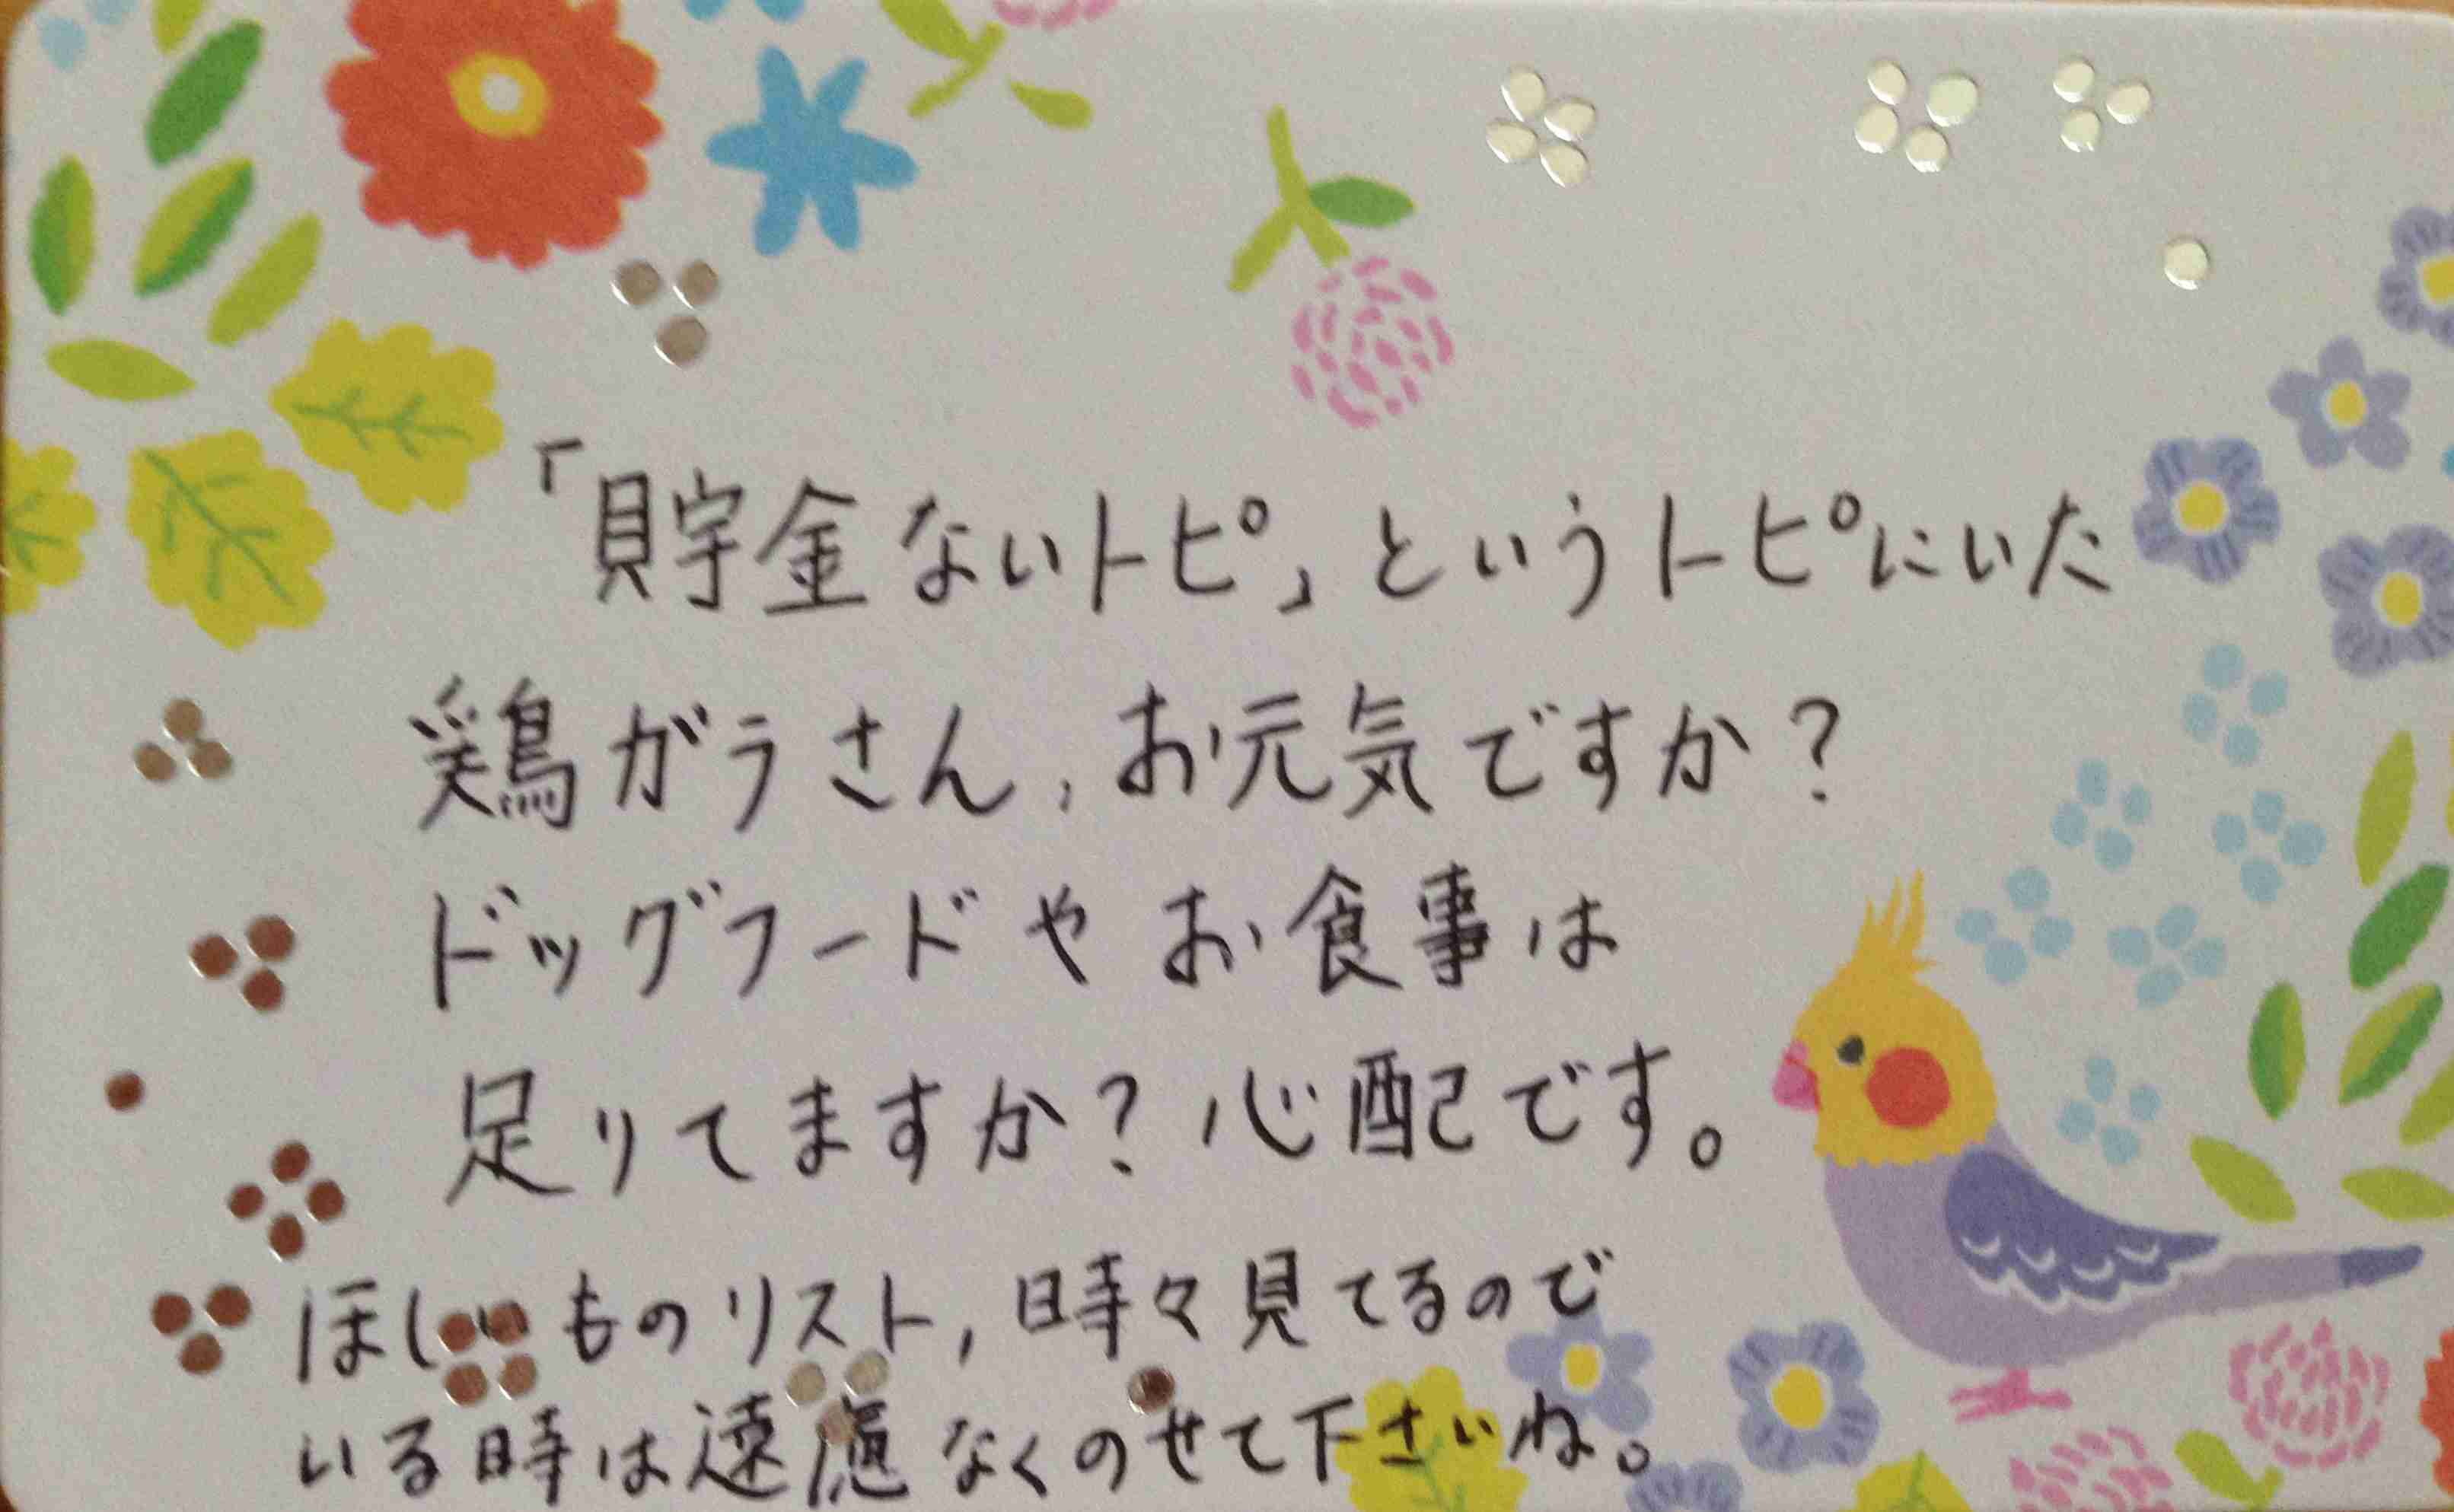 「貯金ないトピ」というトピにいた
鶏ガラさん、お元気ですか?
ドッグフードやお食事は
足りてますか?心配です。
ほしいものリスト,時々見てるので
いる時は遠慮なくのせて下さいね。